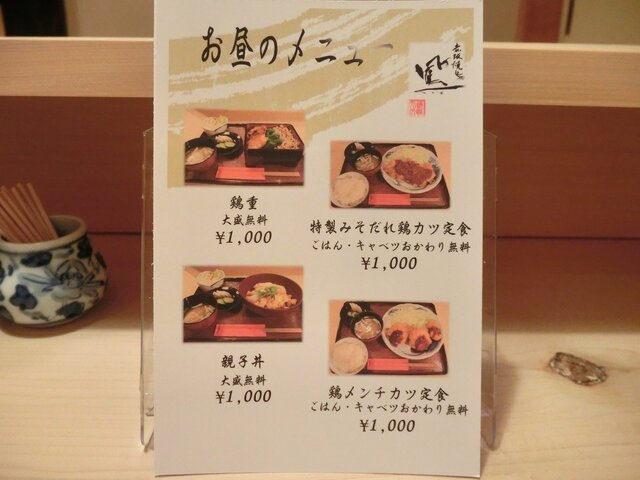 お昼のメニュー
鶏重
大盛無料
¥1,000
特製みそだれ鶏カツ定食
ごはん・キャベツおかわり無料
¥1,000
親子丼
大盛無料
¥1,000
鶏メンチカツ定食
ごはん・キャベツおかわり無料
¥1,000